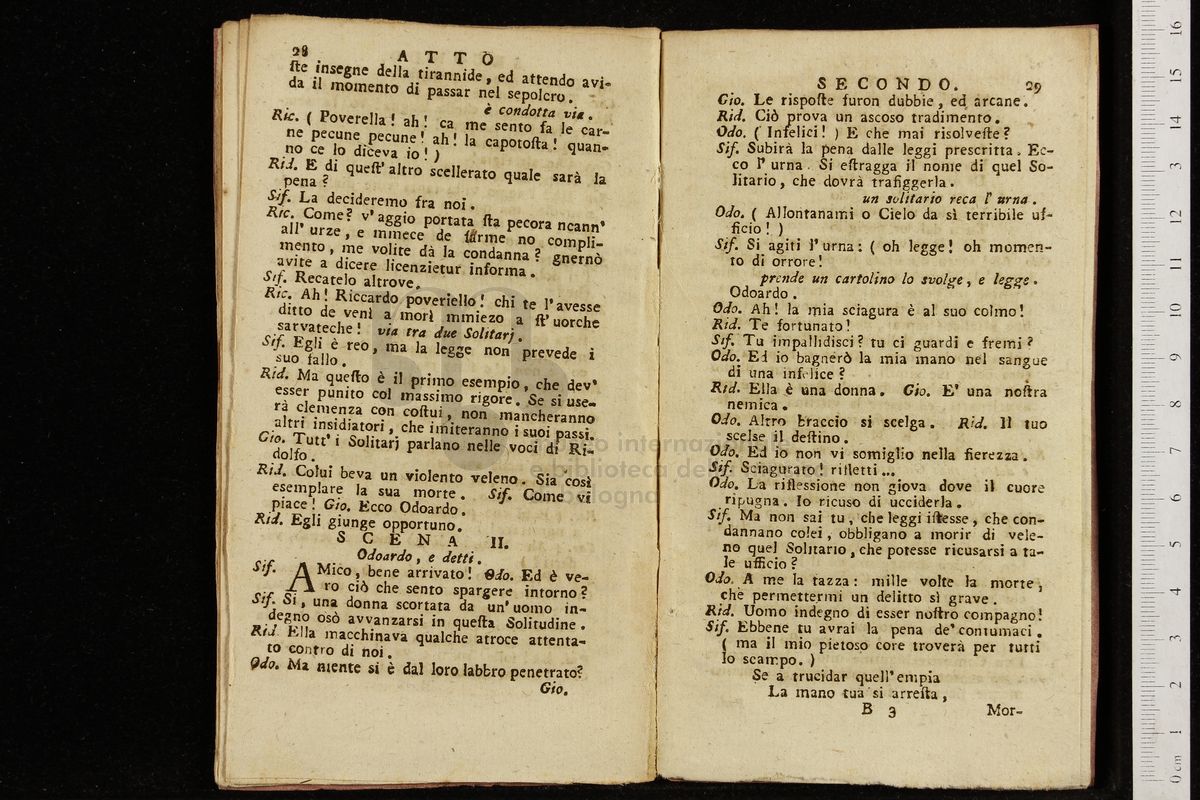 28 ATTO
ſte inſegne della tirannide, ed attendo avi-
da il momento di paſſar nel ſepolcro.
è condotta via.
Ric. ( Poverella! ah! ca me sento fa le car-
ne pecune pecune! ah! la capotoſta! quan-
no ce lo diceva io! )
Rid. E di queſt' altro scellerato quale sarà la
pena?
Sif. La decideremo fra noi.
Ric. Come? v' aggio portata ſta pecora ncann'
all' urze, e mmece de farme no compli-
mento, me volite dà la condanna? gnernò
avite a dicere licenzietur informa.
Sif. Recatelo altrove.
Ric. Ah! Riccardo poveriello! chi te l'avesse
ditto de venì a morì mmiezo a ſt' uorche
sarvateche! via tra due Solitarj.
Sif. Egli è reo, ma la legge non prevede i
suo fallo.
Rid. Ma queſto è il primo esempio, che dev'
esser punito col massimo rigore. Se si use-
rà clemenza con coſtui, non mancheranno
altri insidiatori, che imiteranno i suoi passi.
Gio. Tutt' i Solitarj parlano nelle voci di Ri-
dolfo.
Rid. Colui beva un violento veleno. Sia così
esemplare la sua morte. Sif. Come vi
piace! Gio. Ecco Odoardo.
Rid. Egli giunge opportuno.
SCENA II.
Odoardo, e detti.
Sif. AMico, bene arrivato! Odo. Ed è ve-
ro ciò che sento spargere intorno?
Sif. Si, una donna scortata da un' uomo in-
degno osò avvanzarsi in queſta Solitudine.
Rid Ella macchinava qualche atroce attenta-
to contro di noi.
Odo. Ma niente si è dal loro labbro penetrato?
Gio.
SECONDO. 29
Gio. Le risposte furon dubbie, ed arcane.
Rid. Ciò prova un ascoso tradimento.
Odo. ( Infelici! ) E che mai risolveſte?
Sif. Subirà la pena dalle leggi prescritta. Ec-
co l' urna. Si eſtragga il nome di quel So-
litario, che dovrà trafiggerla.
un solitario reca l' urna.
Odo. ( Allontanami o Cielo da sì terribile uf-
ficio! )
Sif. Si agiti l'urna: ( oh legge! oh momen-
to di orrore!
prende un cartolino lo svolge, e legge.
Odoardo.
Odo. Ah! la mia sciagura è al suo colmo!
Rid. Te fortunato!
Sif. Tu impallidisci? tu ci guardi e fremi?
Odo. Ed io bagnerò la mia mano nel sangue
di una infelice?
Rid. Ella è una donna. Gio. E' una noſtra
nemica.
Odo. Altro braccio si scelga. Rid. Il tuo
scelse il deſtino.
Odo. Ed io non vi somiglio nella fierezza.
Sif. Sciagurato! rifletti...
Odo. La riflessione non giova dove il cuore
ripugna. Io ricuso di ucciderla.
Sif. Ma non sai tu, che leggi iſtesse, che con-
dannano colei, obbligano a morir di vele-
no quel Solitario, che potesse ricusarsi a ta-
le ufficio?
Odo. A me la tazza: mille volte la morte,
che permettermi un delitto sì grave.
Rid. Uomo indegno di esser noſtro compagno!
Sif. Ebbene tu avrai la pena de' contumaci.
( ma il mio pietoso core troverà per tutti
lo scampo. )
Se a trucidar quell' empia
La mano tua si arreſta,
B 3 Mor-